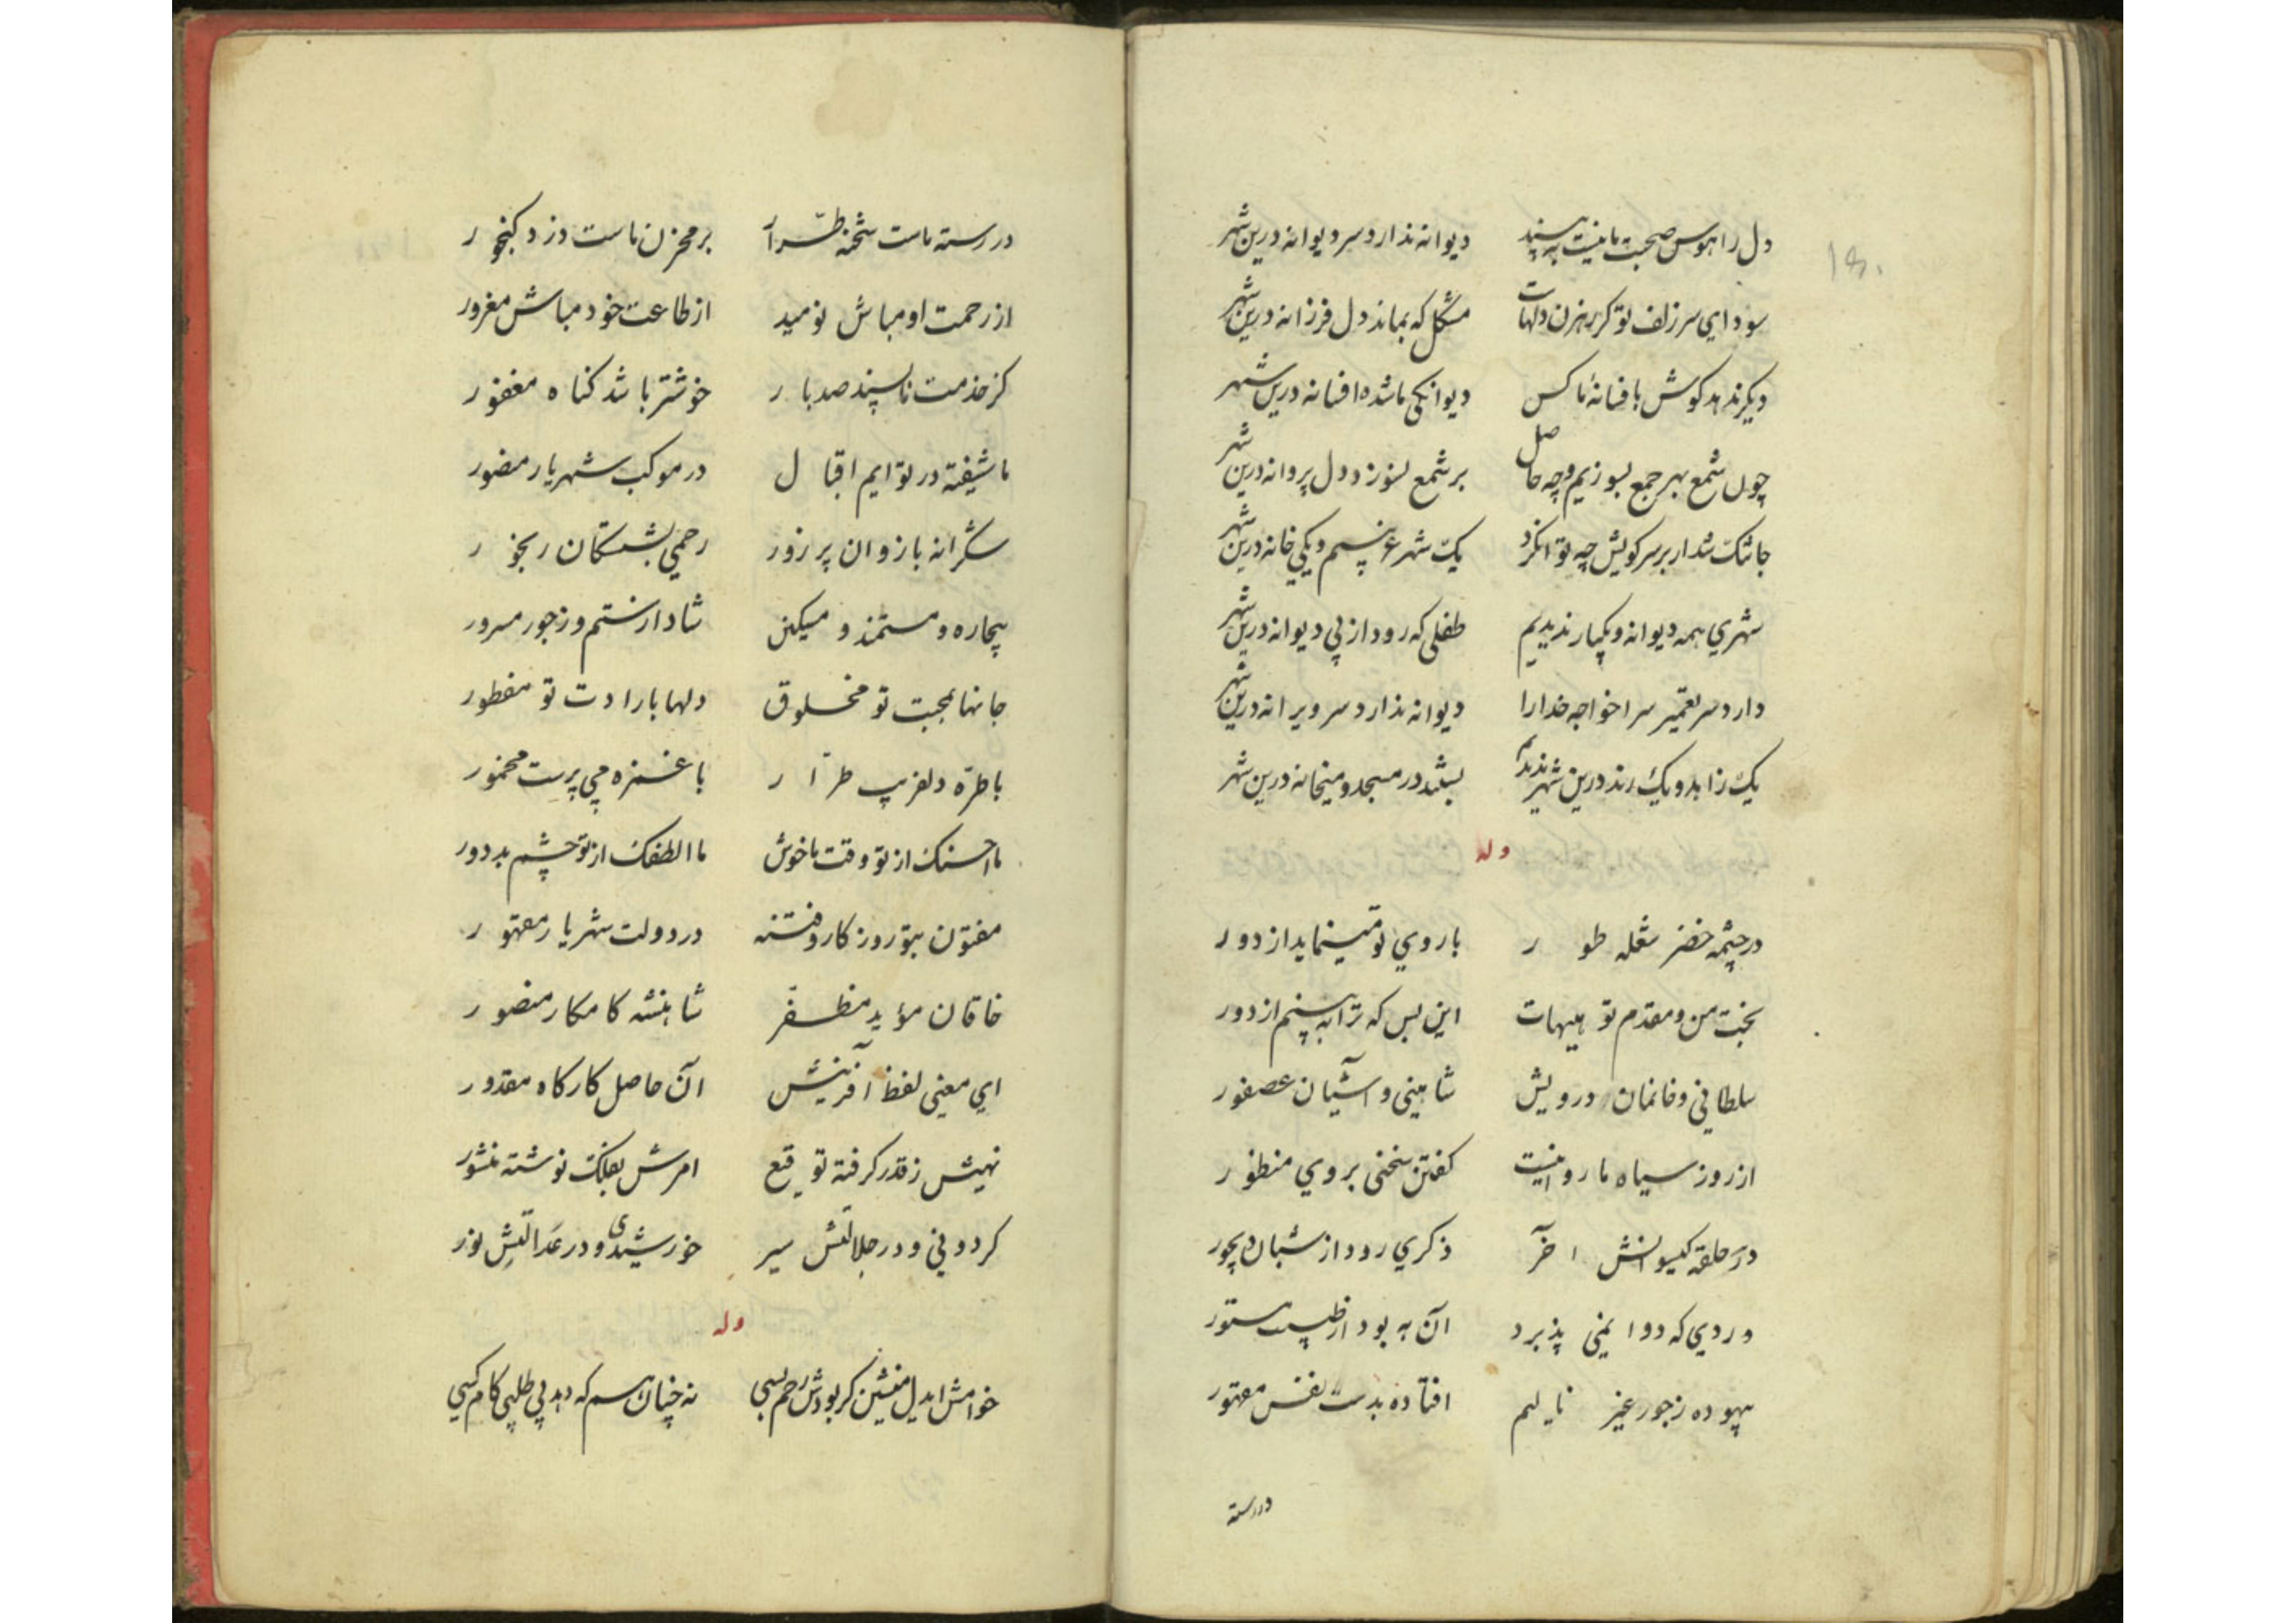 ۱۵۰
دل را هوس صحبت ما نیست به بینید دیوانه ندارد سر دیوانه درین شهر
سودای سر زلف تو گر رهزن دلهاست مشکل که بماند دل فرزانه درین شهر
دیگر ندهد کوش بافسانهٔ ما کس دیوانکی ما شده افسانه درین شهر
چون شمع بهر جمع بسوزیم و چه حاصل بر شمع نسوزد دل پروانه درین شهر
جا تنک شد ار بر سر کویش چه توان کرد یک شهر غریبیم و یکی خانه درین شهر
شهری همه دیوانه و یکبار ندیدیم طفلی که رود از پی دیوانه درین شهر
دارد سر تعمیر سرا خواجه خدا را دیوانه ندارد سر ویرانه درین شهر
یک زاهد و یک رند درین شهر ندیدیم بستند در مسجد و میخانه درین شهر
وله
در چشمه خضر شعله طور با روی تو مینماید از دور
بخت من و مقدم تو هیهات این بس که ترا به بینم از دور
سلطانی و خانمان درویش شاهینی و آشیان عصفور
از روز سیاه ما روا نیست کفتن سخنی بروی منظور
در حلقه کیسوانش آخر ذکری رود از شبان دیجور
دردی که دوا نمی پذیرد آن به بود از طبیب مستور
بیهوده ز جور غیر نالیم افتاده بدست نفس مقهور
در رسته
در رسته ماست شحنه طرّار بر مخزن ماست دزد کنجور
از رحمت او مباش نومید از طاعت خود مباش مغرور
کز خدمت ناپسند صد بار خوشتر باشد کناه مغفور
ما شیفته در توایم اقبال در موکب شهریار منصور
شکرانه بازوان پر زور رحمی بشکستکان رنجور
بیچاره و مستمند و مسکین شاد از ستم و ز جور مسرور
جانها بمحبت تو مخلوق دلها بارادت تو مفطور
با طرّه دلفریب طرّار با غمزه می پرست مخمور
ما احسنک از تو وقت ما خوش ما الطفک از تو چشم بد دور
مفتون بتو روزکار و فتنه در دولت شهریار مقهور
خاقان مؤید مظفّر شاهنشه کامکار منصور
ای معنی لفظ آفرینش آن حاصل کارکاه مقدور
نهیش ز قدر کرفته توقیع امرش بفلک نوشته منشور
کردونی و در جلالتش سیر خورشیدی و در عدالتش نور
وله
خوامش ایدل منشین کر بودش رحم بسی نه چنان هم که دهد بی طلبی کام کسی